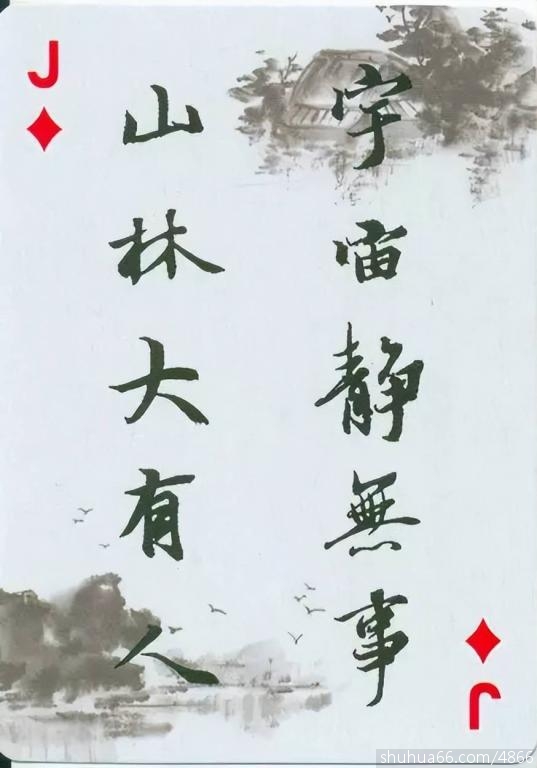 J
宇宙静無事
山林大有人
J
shuhua66.com/4866